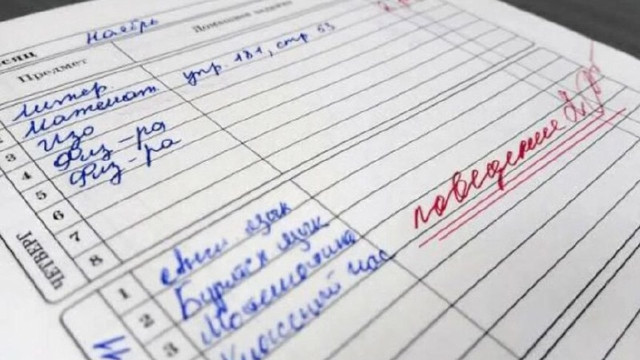 сяц Ноябрь
Предмет Домашнее задание
Литер.
Математ. упр. 181, стр 53
Изо
3 Физ-ра
4 Физ-ра
5
6
7
8
ЧЕТВЕРГ
поведение 2
1 Англ. язык
2 Бурятск язык
3 Математика
Классный час